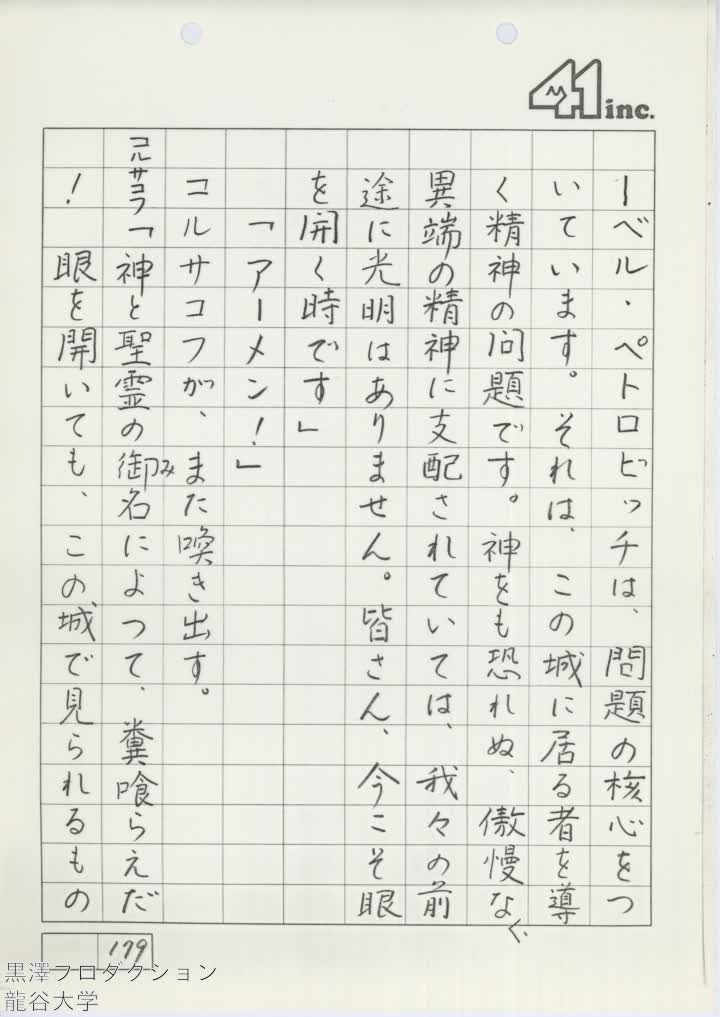 41 inc.
ーベル・ペトロビッチは、問題の核心をつ
いています。それは、この城に居る者を導
く精神の問題です。神をも恐れぬ、傲慢な、
異端の精神に支配されていては、我々の前
途に光明はありません。皆さん、今こそ眼
を開く時です」
「アーメン！」
コルサコフが、また喚き出す。
コルサコフ「神と聖霊の御名によつて、糞喰らえだ
み
！　眼を開いても、この城で見られるもの
179
黒澤プロダクション
龍谷大学